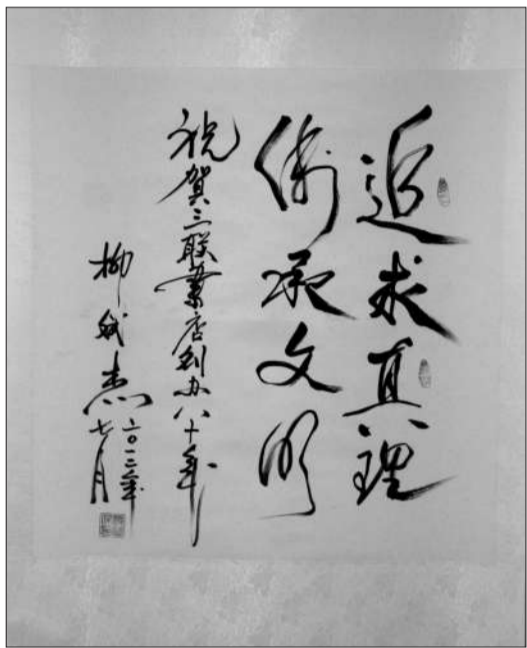 追求真理
传承文明
祝賀三联書店创办八十年
柳斌杰
二〇一二年
七月